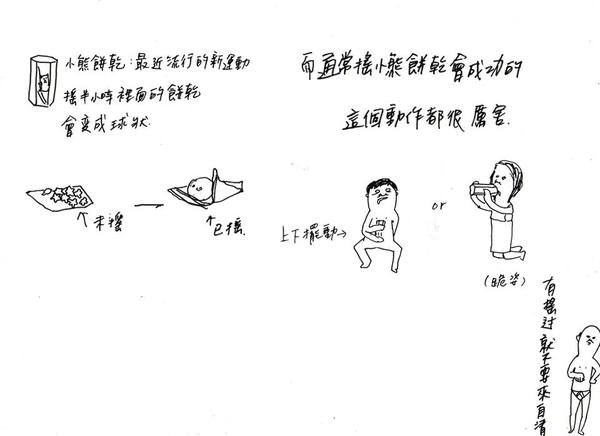 小熊餅乾:最近流行的新運動
搖半小時裡面的餅乾
會变成球狀.
↑未搖
↑已搖.
而通常搖小熊餅乾會成功的
這個動作都很厲害.
上下擺動→
or
(跪姿)
有搖过就不要來自清